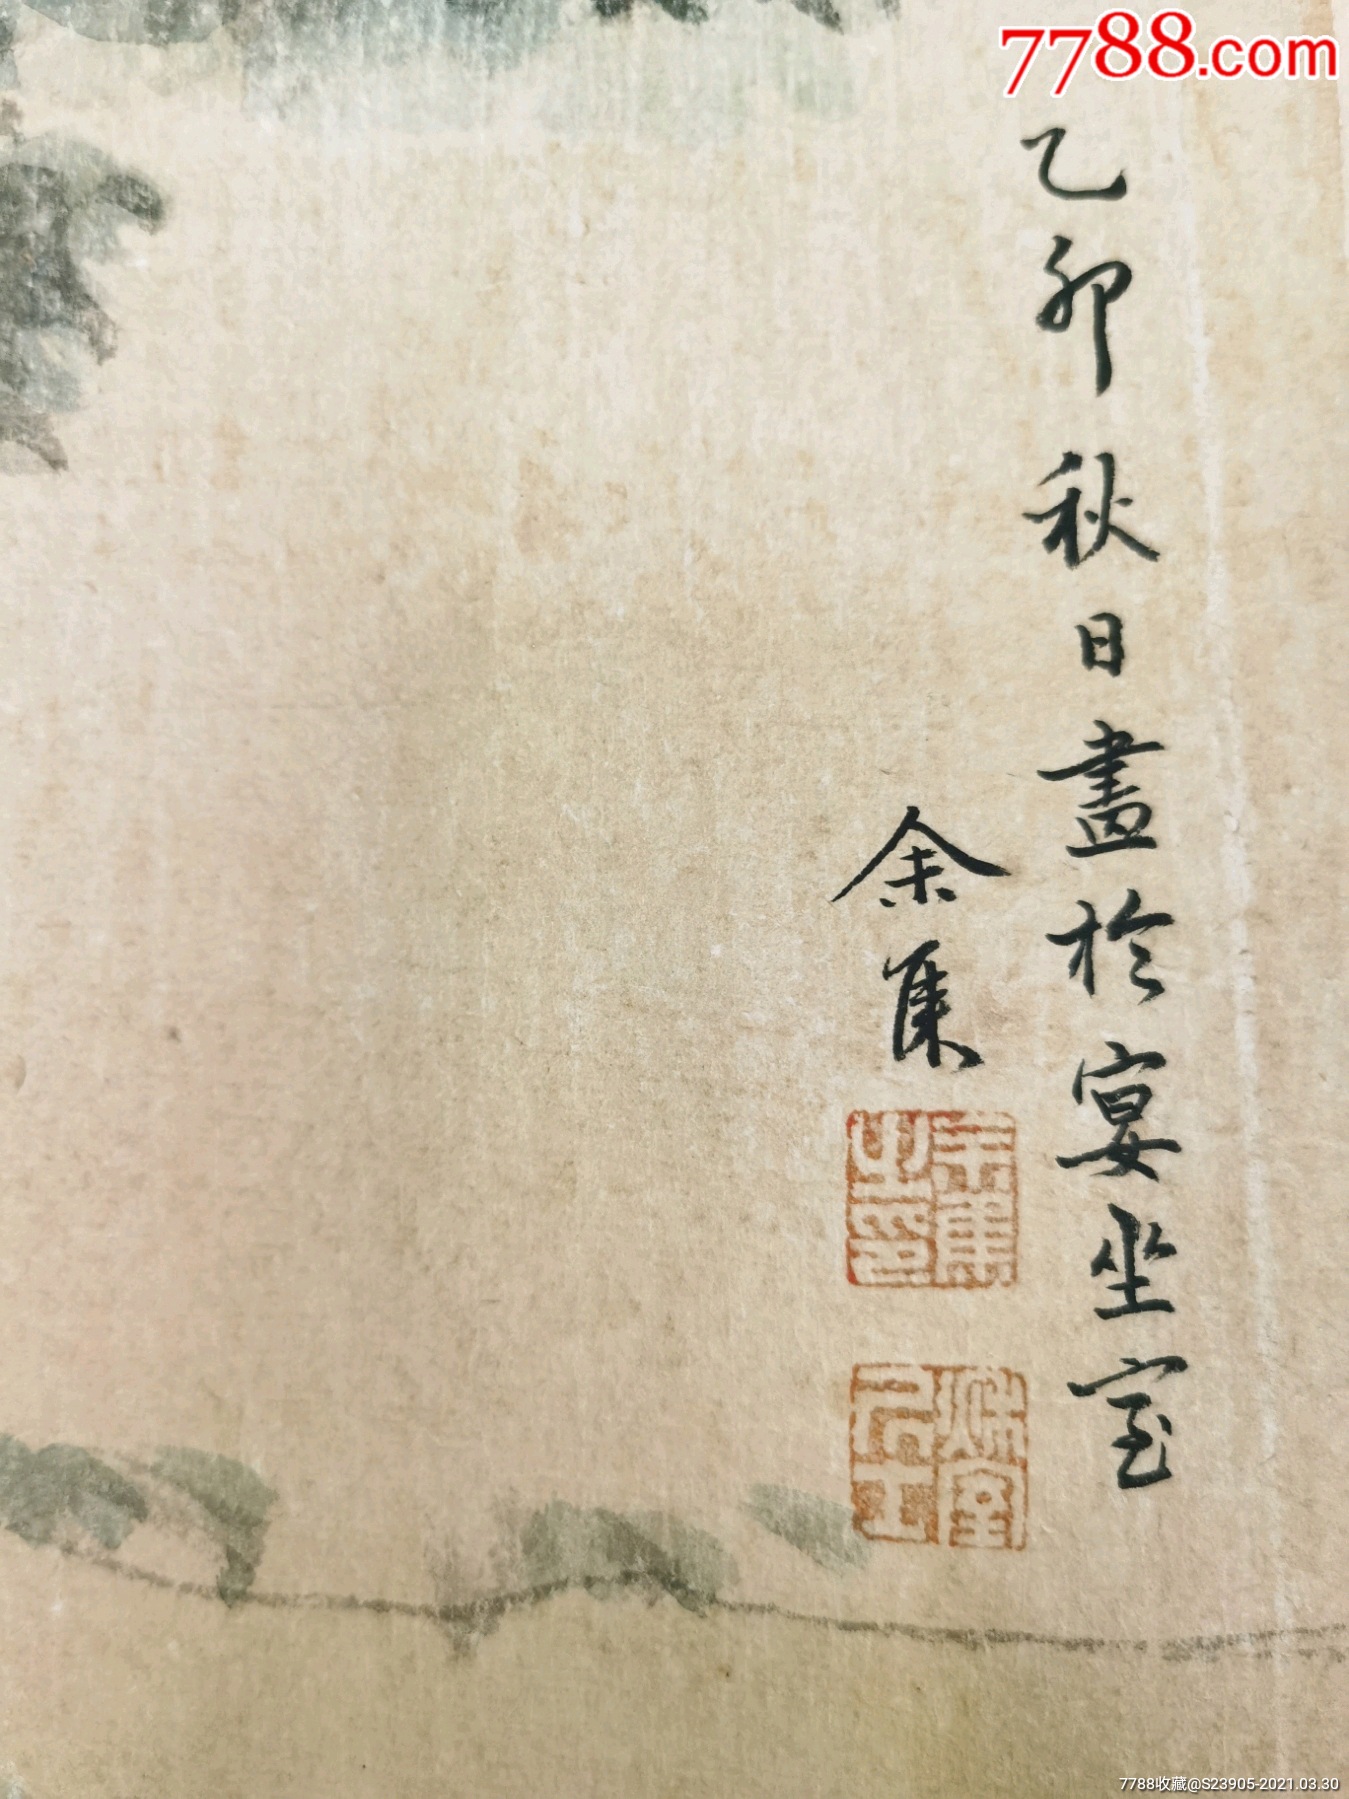 7788.com
乙卯秋日畫於宴坐室
余集
余集之印
秋室居士
7788收藏@S23905-2021.03.30